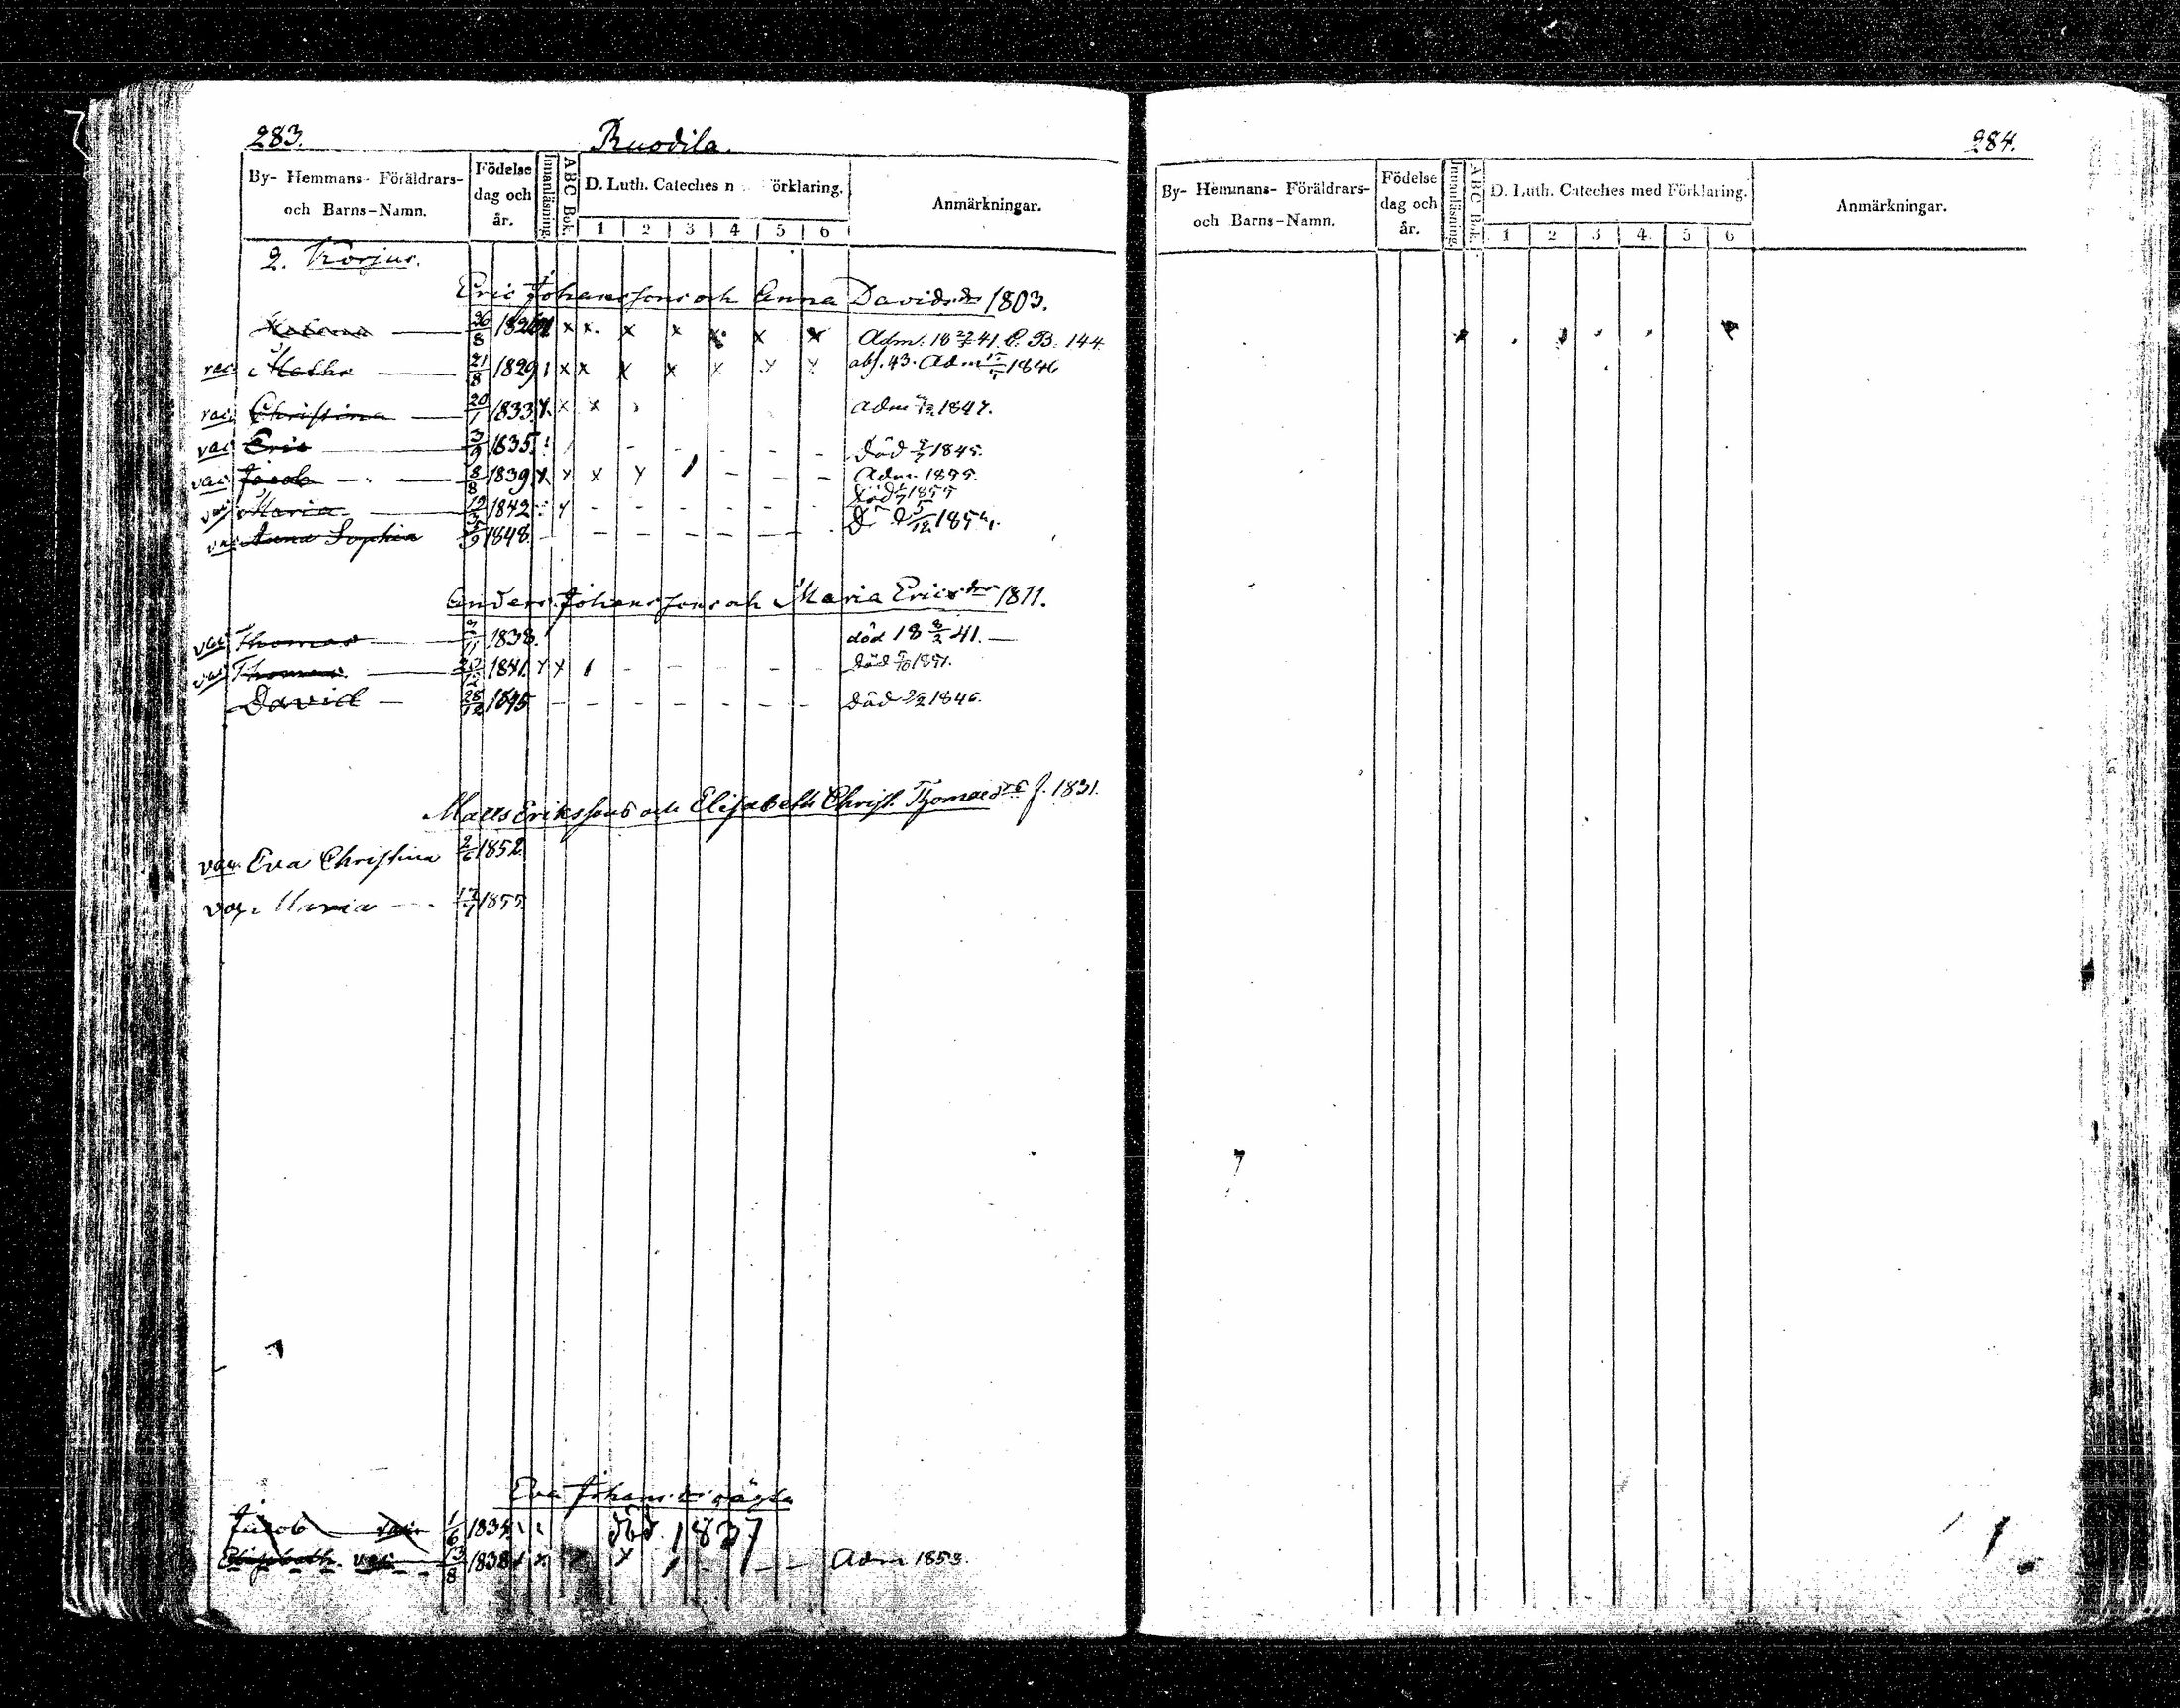 283.
Ruodila.
By- Hemmans- Föräldrars- och Barns-Namn.
Födelse dag och år.
Innanläsning.
ABC Bok.
D. Luth. Cateches örklaring.
1 2 3 4 5 6
Anmärkningar.
2. Korjus.
Eric Johanssons och Anna Davidsdr 1803.
8 182 x x. x x x x x Adm. 18 41. C. B. 144.
Maths 21/8 1829 x x x x x x x abs. 43. Adm 1846
vac. Christina 20/1 1833. x x x Adm 1847.
vac Eric 3/9 1835. - - - - - död 1845.
vac. Jacob 8/8 1839. x x x y / - - - Adm. 1855.
död 1855
vac Maria 1842 y - - - - - - 5/12 185
vac Anna Sophia 1848. - - - - - - -
Anders Johanssons och Maria Ericsdr 1811.
vac Thomas 11 1838. död 18 8/2 41. —
vac Thomas 12 1841. y y / - - - - - död
David — 28/12 1845 - - - - - - - död 1846.
Matts Erikssons och Elisabeth Christ. Thomasdr f. 1831.
vac. Eva Christina 2/6 1852.
vac. Maria 17/7 1855.
Eva Johans. oäkta
Jacob vac 1/6 1834. död. 1837
Elisabeth vac 8 1838 x x x x / - - - Adm 1853.
284.
By- Hemmans- Föräldrars- och Barns-Namn.
Födelse dag och år.
Innanläsning.
ABC Bok.
D. Luth. Cateches med Förklaring.
1 2 3 4 5 6
Anmärkningar.